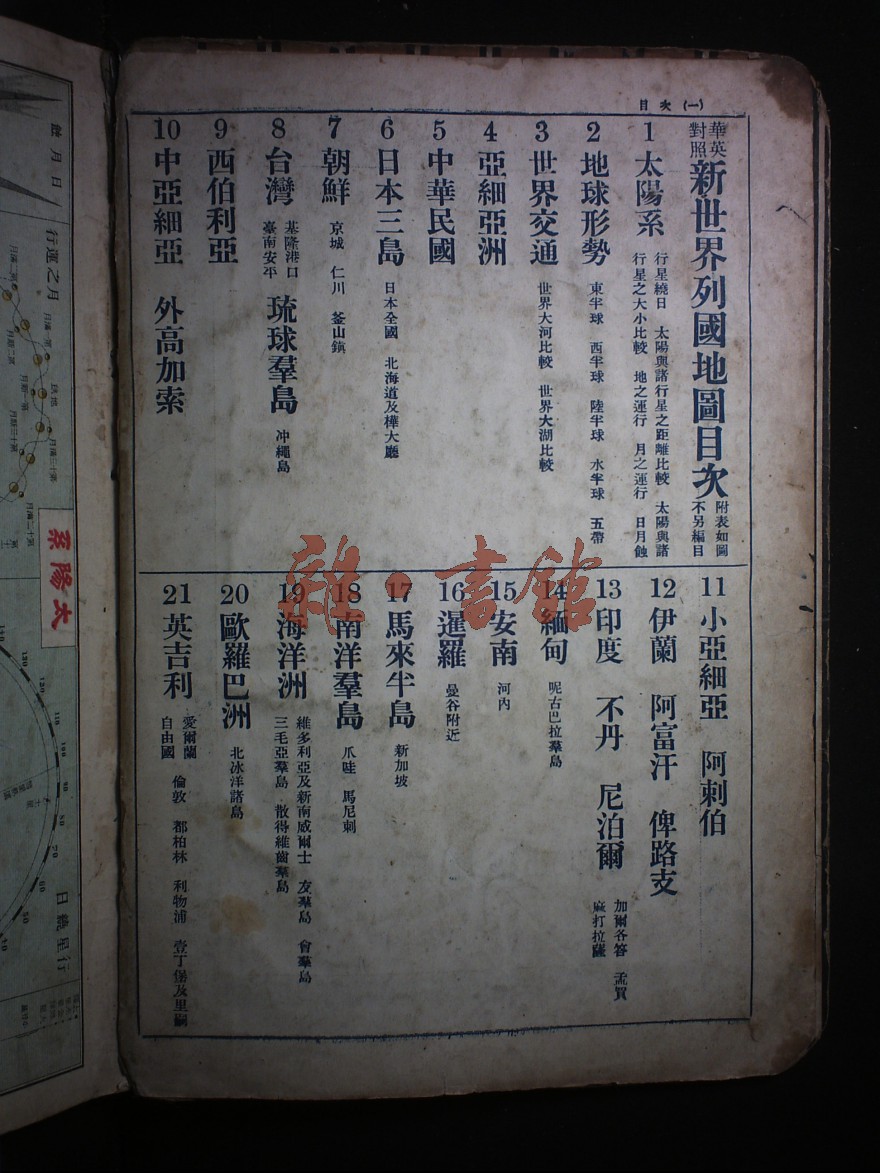 目次(一)
華英對照 新世界列國地圖目次 附表如圖不另編目
1 太陽系 行星繞日 太陽與諸行星之距離比較 太陽與諸行星之大小比較 地之運行 月之運行 日月蝕
2 地球形勢 東半球 西半球 陸半球 水半球 五帶
3 世界交通 世界大河比較 世界大湖比較
4 亞細亞洲
5 中華民國
6 日本三島 日本全國 北海道及樺大廳
7 朝鮮 京城 仁川 釜山鎮
8 台灣 基隆港口 臺南安平 琉球羣島 冲繩島
9 西伯利亞
10 中亞細亞 外高加索
11 小亞細亞 阿剌伯
12 伊蘭 阿富汗 俾路支
13 印度 不丹 尼泊爾 加爾各答 孟買 麻打拉薩
14 緬甸 呢古巴拉羣島
15 安南 河內
16 暹羅 曼谷附近
17 馬來半島 新加坡
18 南洋羣島 爪哇 馬尼剌
19 海洋洲 維多利亞及新南威爾士 友羣島 會羣島 三毛亞羣島 散得維齒羣島
20 歐羅巴洲 北冰洋諸島
21 英吉利 愛爾蘭自由國 倫敦 都柏林 利物浦 壹丁堡及里嗣
雜·書館
蝕月日
行運之月
太陽系
行星繞日